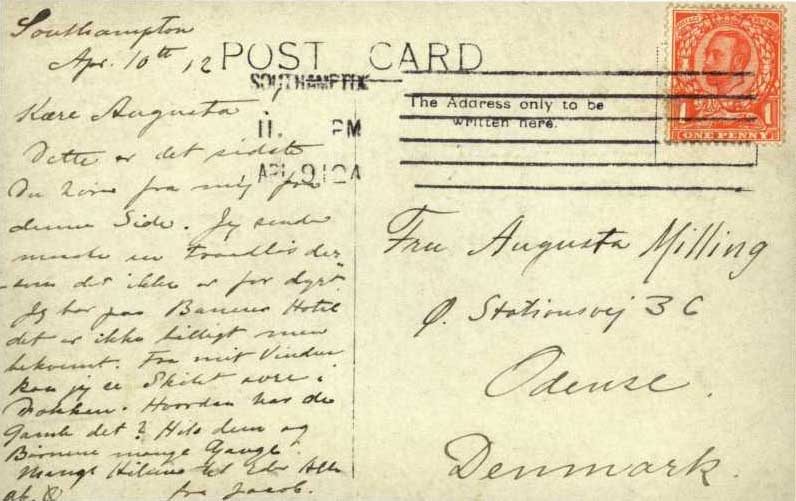 Southampton
Apr. 10th 12
POST CARD
SOUTHAMPTON
11. PM
AP 9 12 A
The Address only to be
written here.
ONE PENNY
Kære Augusta
Dette er det sidste
Du hører fra mig fra
denne Side. Jeg sender
maaske en traadløs der-
som det ikke er for dyrt.
Jeg bor paa Hotel
det er ikke billigt men
bekvemt. Fra mit Vindue
kan jeg se Skibet ovre i
Dokken. Hvordan har de
Gamle det? Hils dem og
Børnene mange Gange.
Mange Hilsner til Eder Alle
fra Jacob.
Fru Augusta Milling
Ø. Stationsvej 36
Odense.
Denmark.